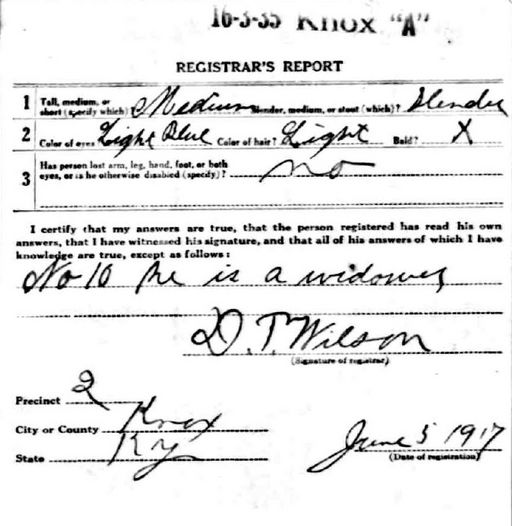 16-3-35 Knox "A"
REGISTRAR'S REPORT
1 Tall, medium, or short (specify which)? Medium Slender, medium, or stout (which)? Slender
2 Color of eyes Light Blue Color of hair? Light Bald? X
3 Has person lost arm, leg, hand, foot, or both eyes, or is he otherwise disabled (specify)? no
I certify that my answers are true, that the person registered has read his own
answers, that I have witnessed his signature, and that all of his answers of which I have
knowledge are true, except as follows:
No 10 he is a widower
D. T. Wilson
(Signature of registrar)
Precinct 2
City or County Knox
State Ky
June 5 1917
(Date of registration)